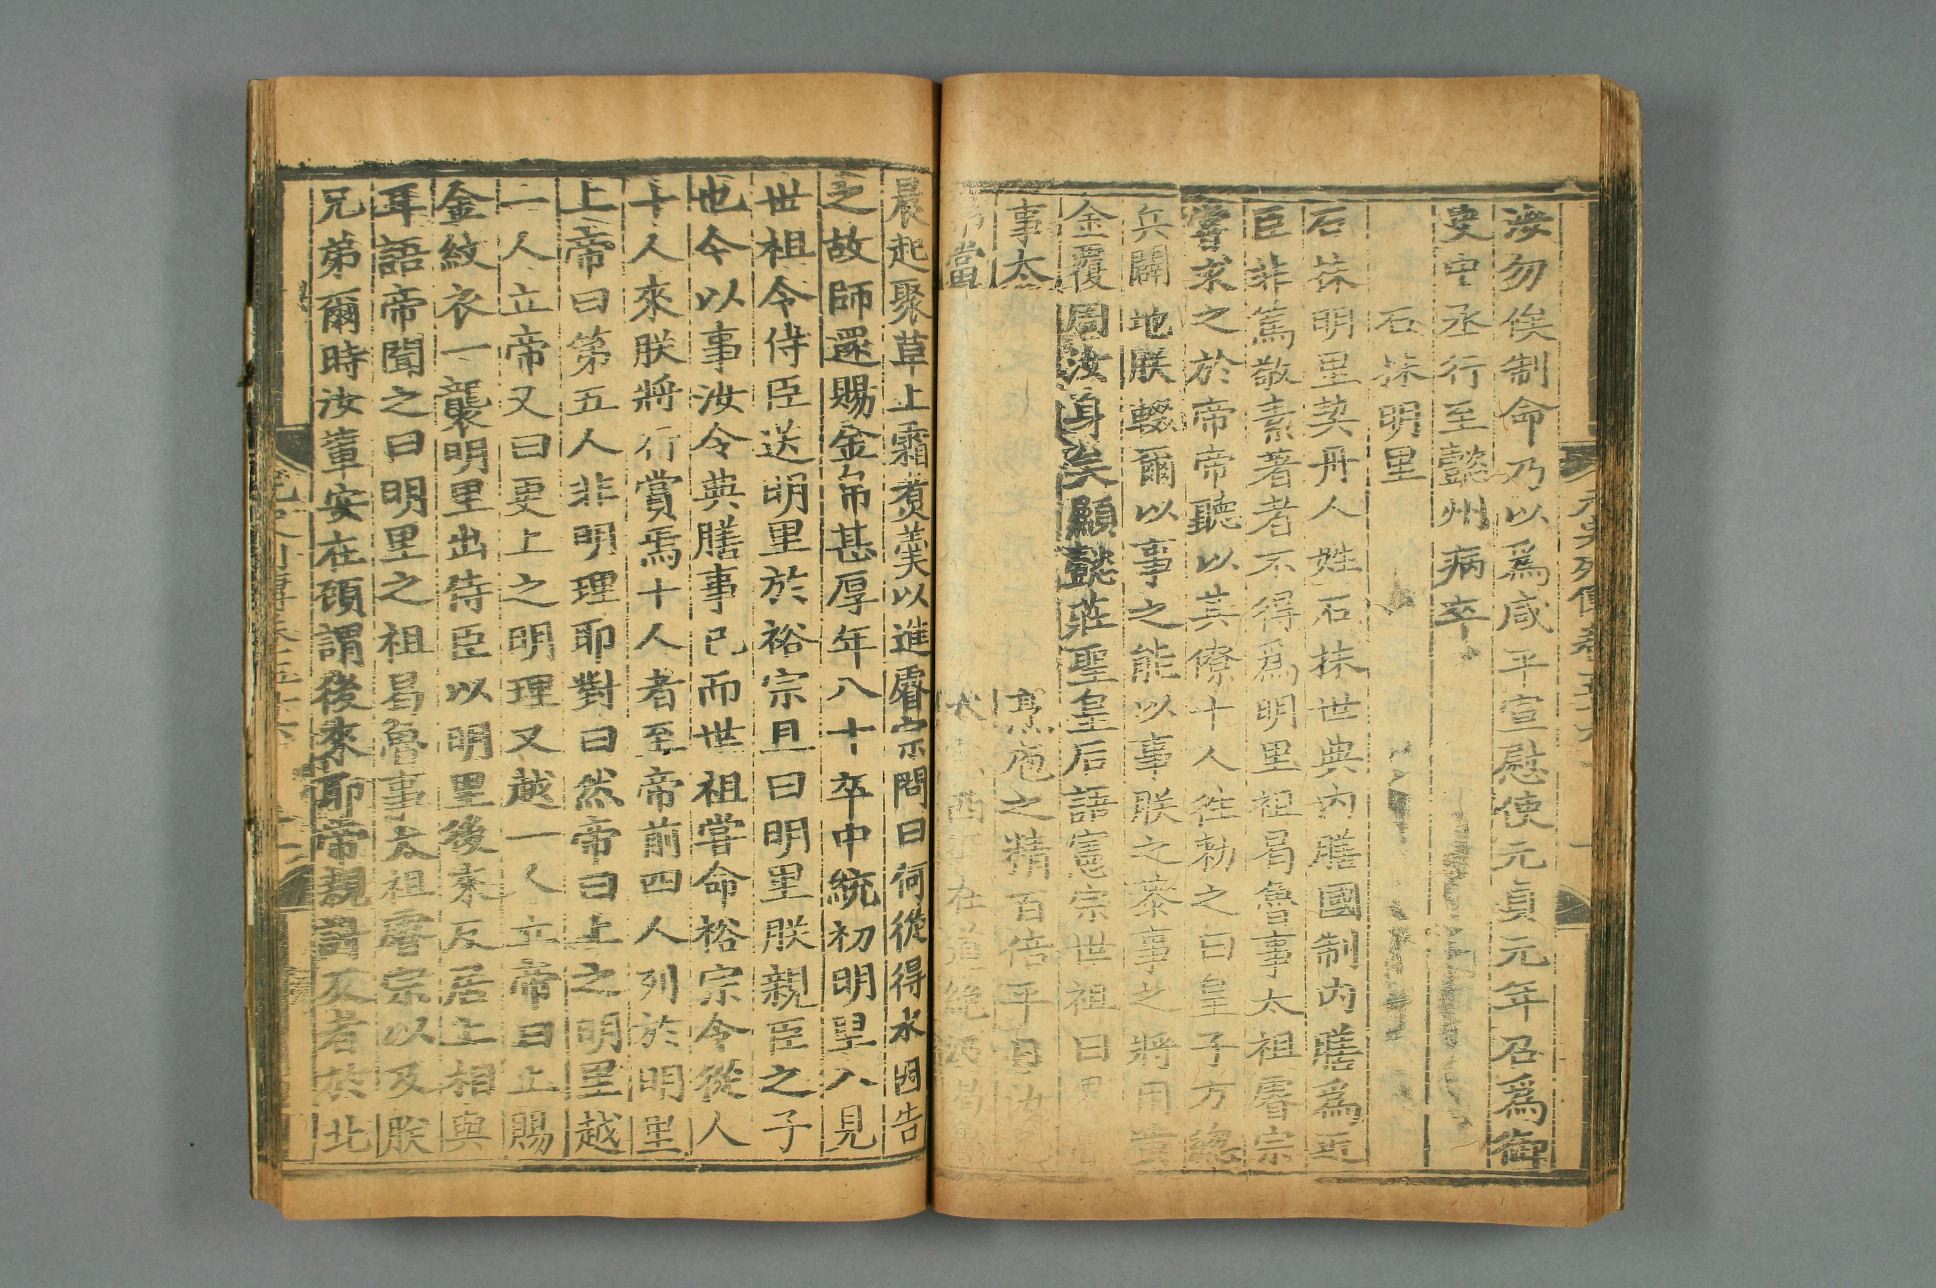 汝勿俟制命乃以爲咸平宣慰使元貞元年召爲御
史中丞行至懿州病卒
石抹明里
石抹明里契丹人姓石抹世典內膳國制內膳爲近
臣非篤敬素著者不得爲明里祖曷魯事太祖睿宗
嘗求之於帝帝聽以其僚十人往勑之曰皇子方總
兵闢地朕輟爾以事之能以事朕之泰事之將用黃
金覆周汝身矣顯懿莊聖皇后語憲宗世祖曰
事太 烹庖之精百倍平日汝
當 在道絶
晨起聚草上霜煑羹以進睿宗問曰何從得水因告
之故師還賜金帛甚厚年八十卒中統初明里入見
世祖令侍臣送明里於裕宗且曰明里朕親臣之子
也今以事汝令典膳事已而世祖嘗命裕宗令從人
十人來朕將行賞焉十人者至帝前四人列於明里
上帝曰第五人非明理耶對曰然帝曰上之明里越
一人立帝又曰更上之明理又越一人立帝曰止賜
金紋衣一襲明里出侍臣以明里後來反居上相與
耳語帝聞之曰明里之祖曷魯事太祖睿宗以及朕
兄弟爾時汝輩安在顧謂後來耶帝親討反者於北
元史列傳卷五十六
元史列傳卷五十六